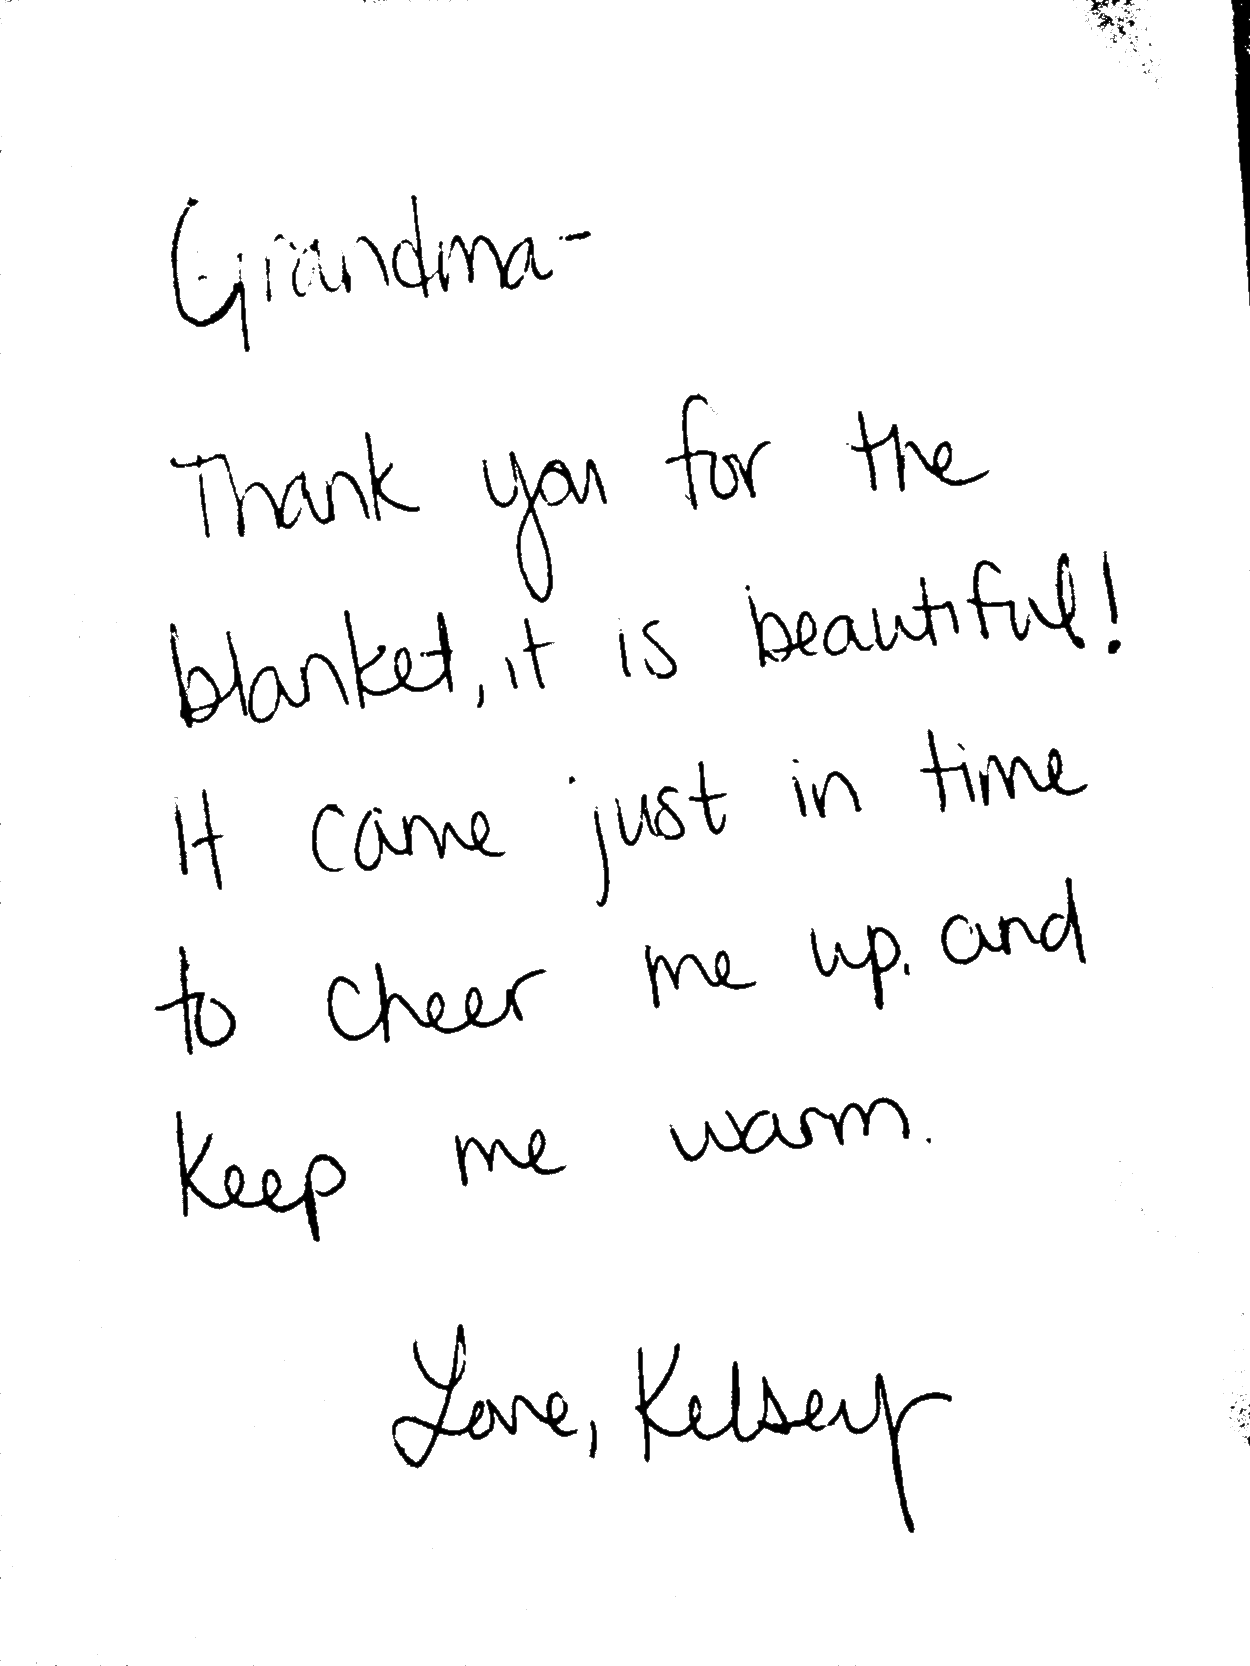 Grandma-
Thank you for the
blanket, it is beautiful!
It came just in time
to cheer me up. and
keep me warm.
Love, Kelsey